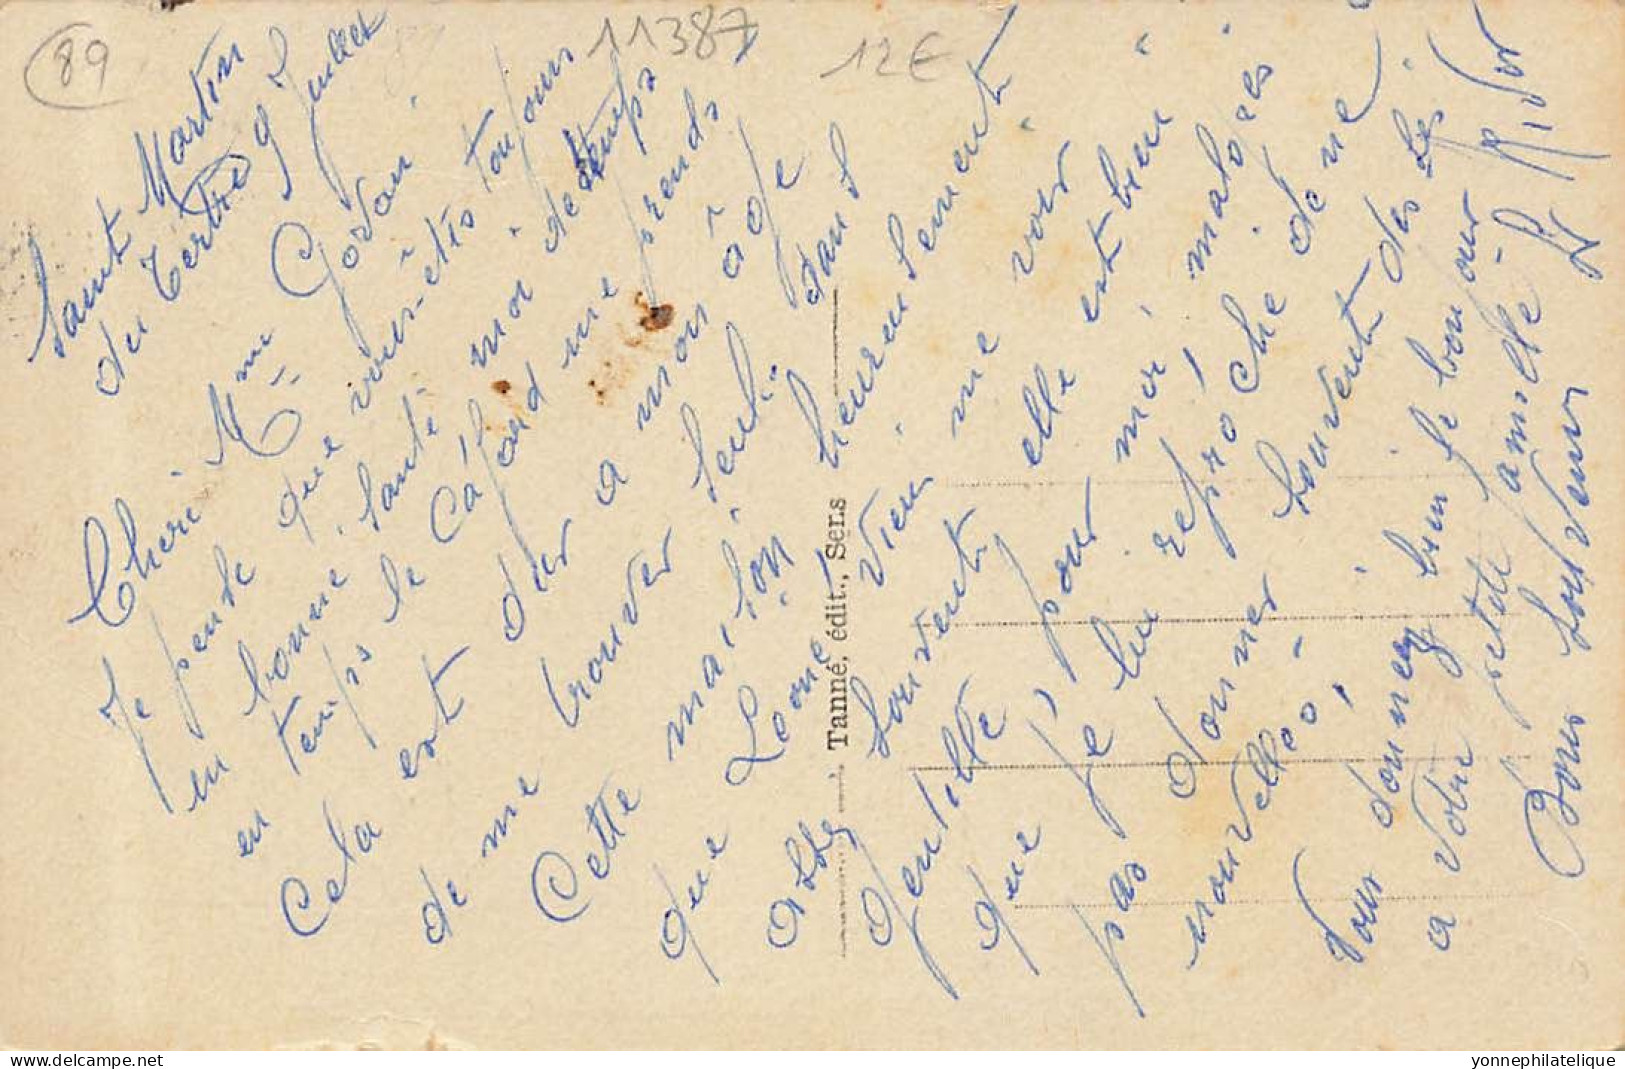 89
11387
12€
Saint Martin
du Tertre 9 Juillet
Cheri Mme Goran
Je pense que vous-êtes toujours
en bonne santé moi de temps
en temps le cafard me prends
Cela est dur a mon âge
de me trouver seul dans
Cette maison heureusement
que Leone vien me voir
assez souvent elle est bien
gentille, pour moi, malgrés
que je lui reproche de ne
pas donner souvent des ses
nouvelles,
Vous donnez bien le bonjour
a votre petite famille
Bons souvenir
Tanné, édit., Sens
www.delcampe.net
yonnephilatelique